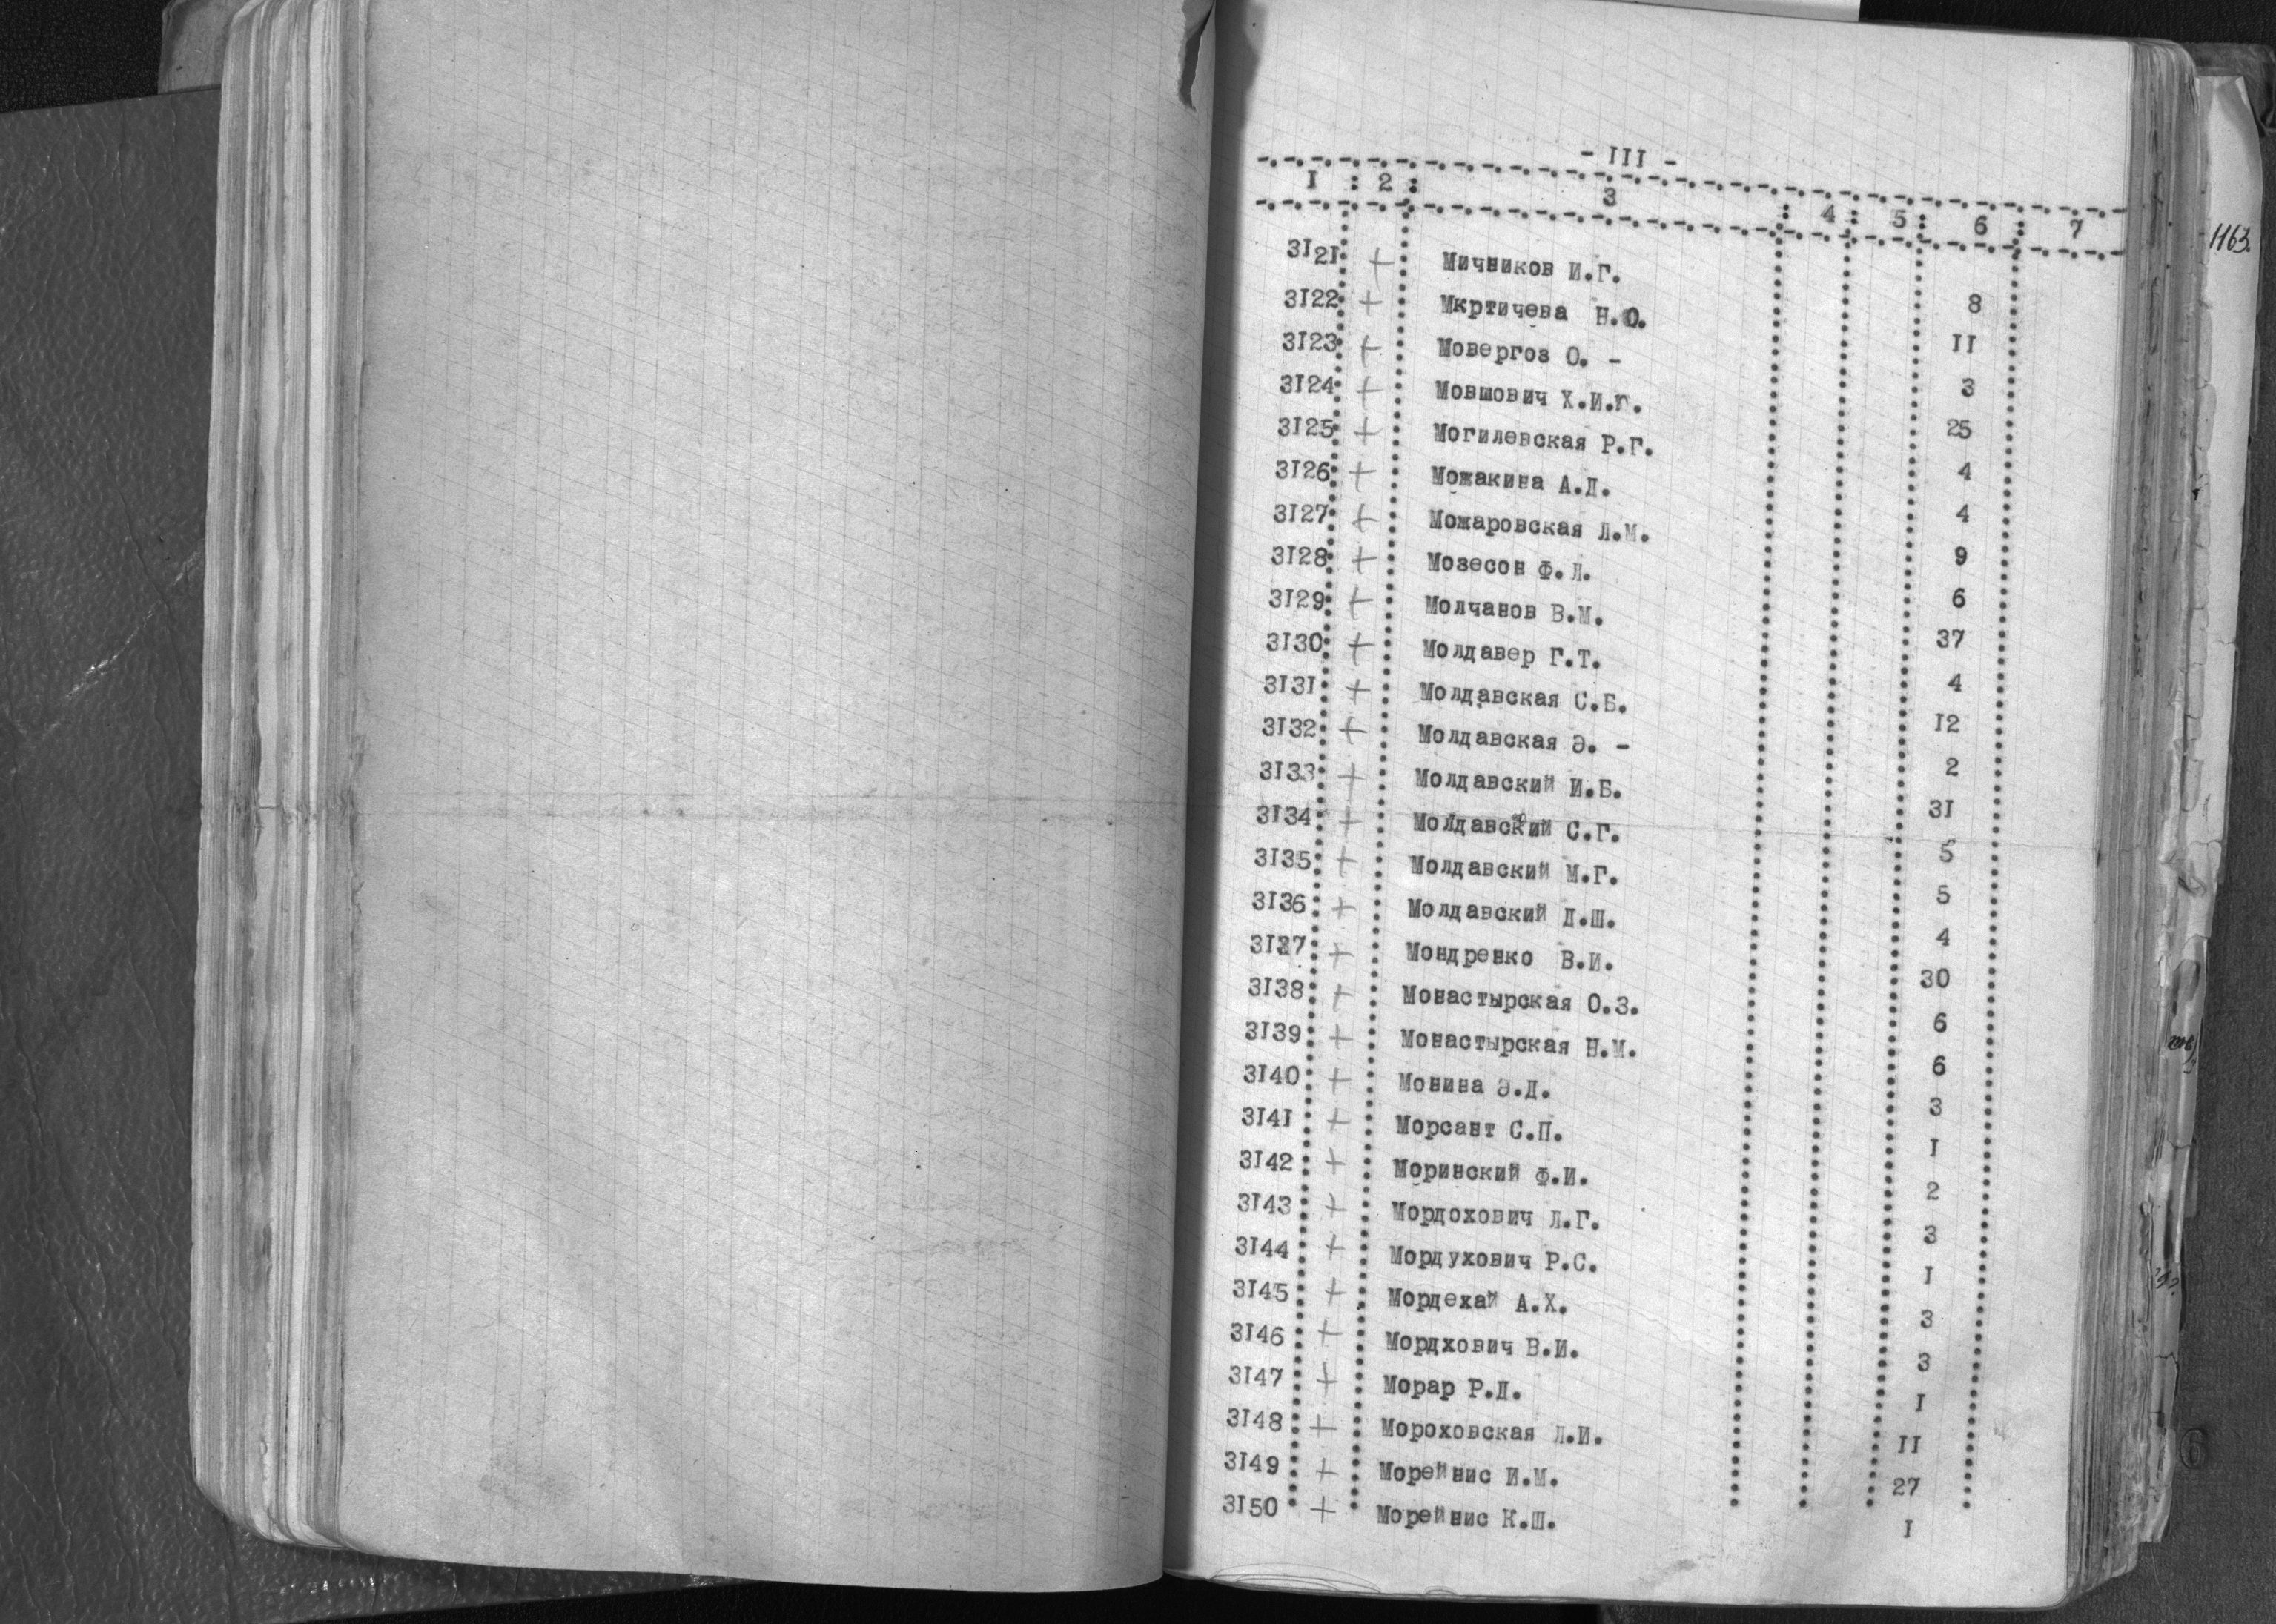 - III -
I : 2 : 3 : 4 : 5 : 6 : 7
1163.
3I2I + Мичников И.Г. 8
3I22 + Мкртичева Н.О. II
3I23 + Мовергоз О. - 3
3I24 + Мовшович Х.И.Г. 25
3I25 + Могилевская Р.Г. 4
3I26 + Можакина А.Д. 4
3I27 + Можаровская Л.М. 9
3I28 + Мозесон Ф.Л. 6
3I29 + Молчанов В.М. 37
3I30 + Молдавер Г.Т. 4
3I3I + Молдавская С.Б. I2
3I32 + Молдавская Э. - 2
3I33 + Молдавский И.Б. 3I
3I34 + Молдавский С.Г. 5
3I35 + Молдавский М.Г. 5
3I36 + Молдавский Д.Ш. 4
3I37 + Мондренко В.И. 30
3I38 + Монастырская О.З. 6
3I39 + Монастырская Н.М. 6
3I40 + Монина Э.Д. 3
3I4I + Морсант С.П. I
3I42 + Моринский Ф.И. 2
3I43 + Мордохович Л.Г. 3
3I44 + Мордухович Р.С. I
3I45 + Мордехай А.Х. 3
3I46 + Мордхович В.И. 3
3I47 + Морар Р.Д. I
3I48 + Мороховская Л.И. II
3I49 + Морейнис И.М. 27
3I50 + Морейнис К.Ш. I